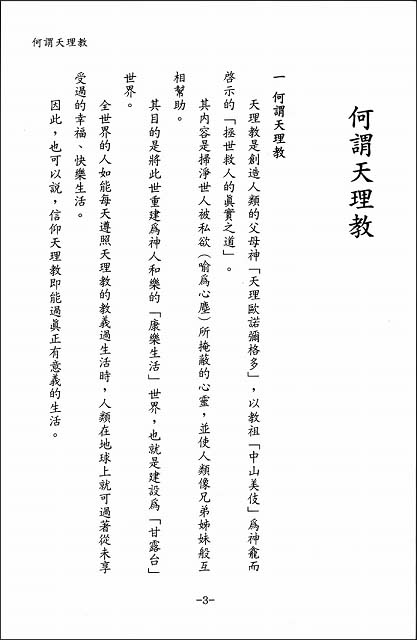 何謂天理教
何謂天理教
一 何謂天理教
天理教是創造人類的父母神「天理歐諾彌格多」，以教祖「中山美伎」爲神龕而
啓示的「拯世救人的眞實之道」。
其內容是掃淨世人被私欲（喻爲心塵）所掩蔽的心靈，並使人類像兄弟姊妹般互
相幫助。
其目的是將此世重建爲神人和樂的「康樂生活」世界，也就是建設爲「甘露台」
世界。
全世界的人如能每天遵照天理教的教義過生活時，人類在地球上就可過著從未享
受過的幸福、快樂生活。
因此，也可以說，信仰天理教即能過眞正有意義的生活。
-3-